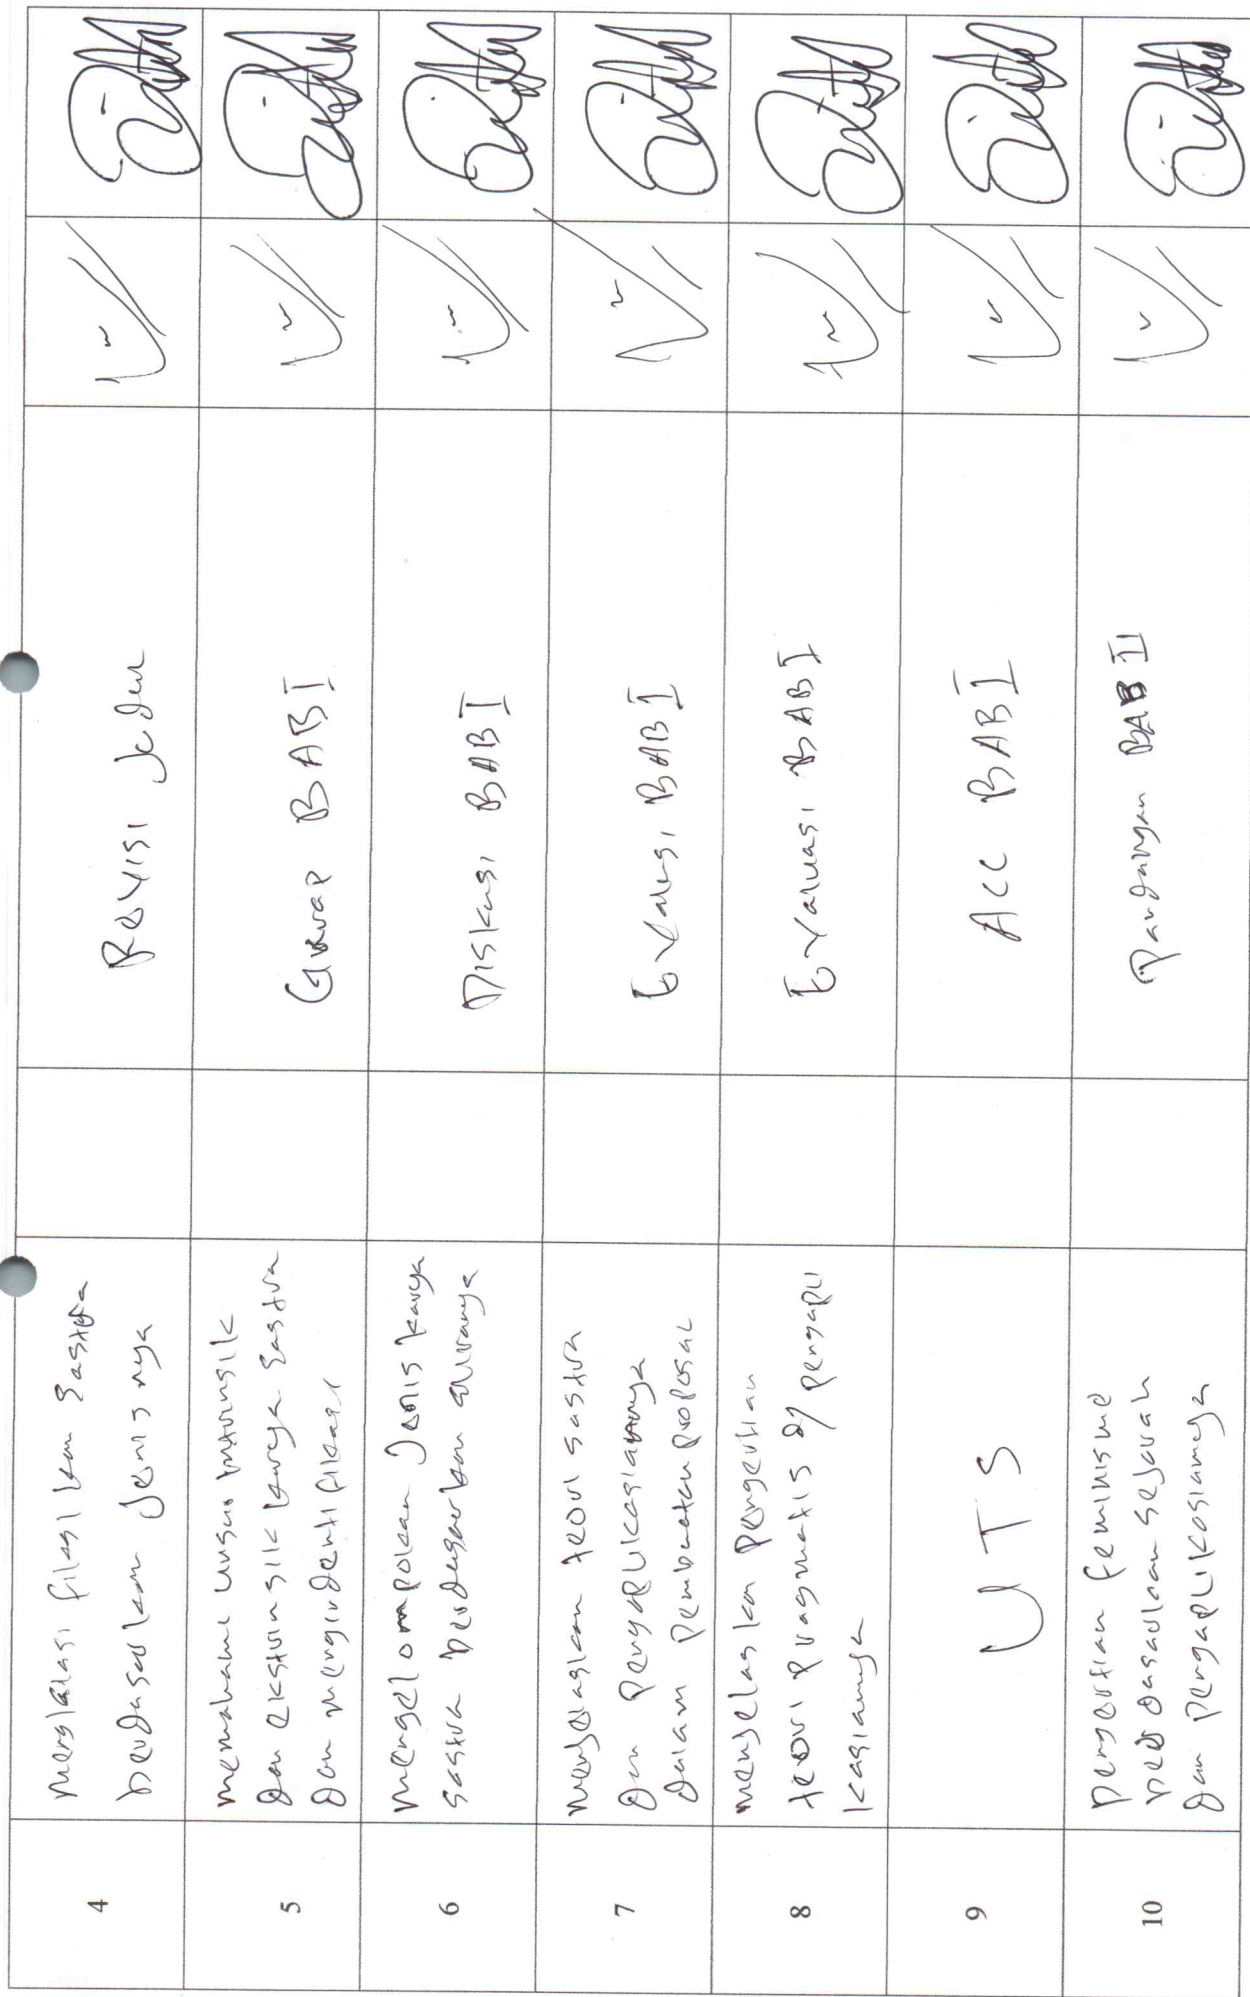 4
Mengklasifikasikan Sastra
berdasarkan Jenisnya
Revisi Judul
5
memahami unsur intrinsik
dan ekstrinsik karya Sastra
dan mengidentifikasi
Garap BAB I
6
Mengelompokan Jenis karya
sastra berdasarkan alirannya
Diskusi BAB I
7
menjelaskan teori sastra
dan pengaplikasiannya
dalam pembuatan proposal
Evaluasi BAB I
8
menjelaskan pengertian
teori pragmatis dg pengapli
kasiannya
Evaluasi BAB I
9
UTS
ACC BAB I
10
pengertian feminisme
berdasarkan sejarah
dan pengaplikasiannya
Pandangan BAB II